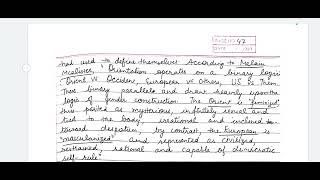 47
had used to define themselves. According to Melain
McAlister, " Orientation operates on a binary logic
Orient V/s Occident, European vs Others, US vs Them
These binary parallels and draw heavily upon the
logic of gender construction. The Orient is "feminized",
thus posited as mysterious, infinitely sensual and
tied to the body, irrational and inclined to
toward despotism, by contrast, the European is
"masculinized" and represented as civilized,
restrained, rational and capable of democratic
self-rule"